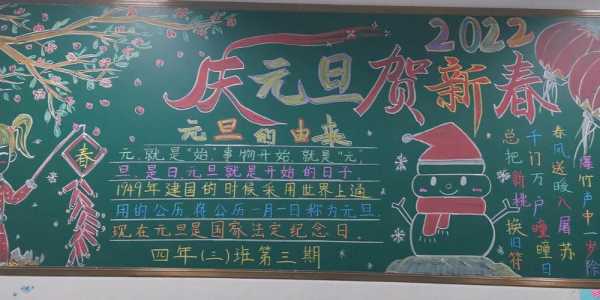 2022
庆元旦贺新春
元旦的由来
元,就是"始,事物开始,就是"元,
旦,是日元旦就是开始的日子,
1949年建国的时候采用世界上通
用的公历,将公历一月一日称为元旦,
现在元旦是国家法定纪念日.
四年(二)班第三期
春
爆竹声中一岁除
春风送暖入屠苏
千门万户曈曈日
总把新桃换旧符